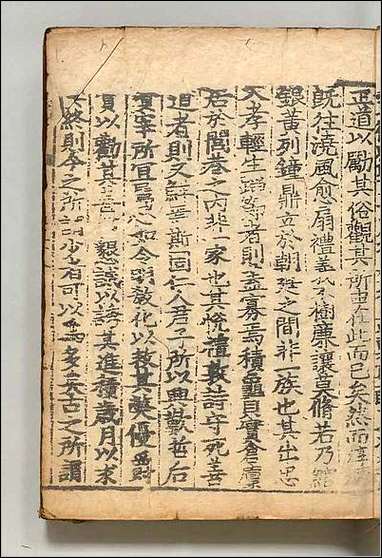 正道以勵其俗觀其所由在此而已矣然而淳
既往澆風愈扇禮義不樹廉讓莫脩若乃綰
銀黃列鐘鼎立於朝廷之間非一族也其出忠
入孝輕生蹈節者則盖寡焉積龜貝實倉廩
居於閭巷之內非一家也其悅禮敦詩守死善
道者則又鮮焉斯固仁人君子所以興歎哲后
賢宰所宜屬心如令明教化以救其弊優爵
賞以勸其善懇誠以誘其進積歲月以求
其終則今之所謂少者可以爲多矣古之所謂